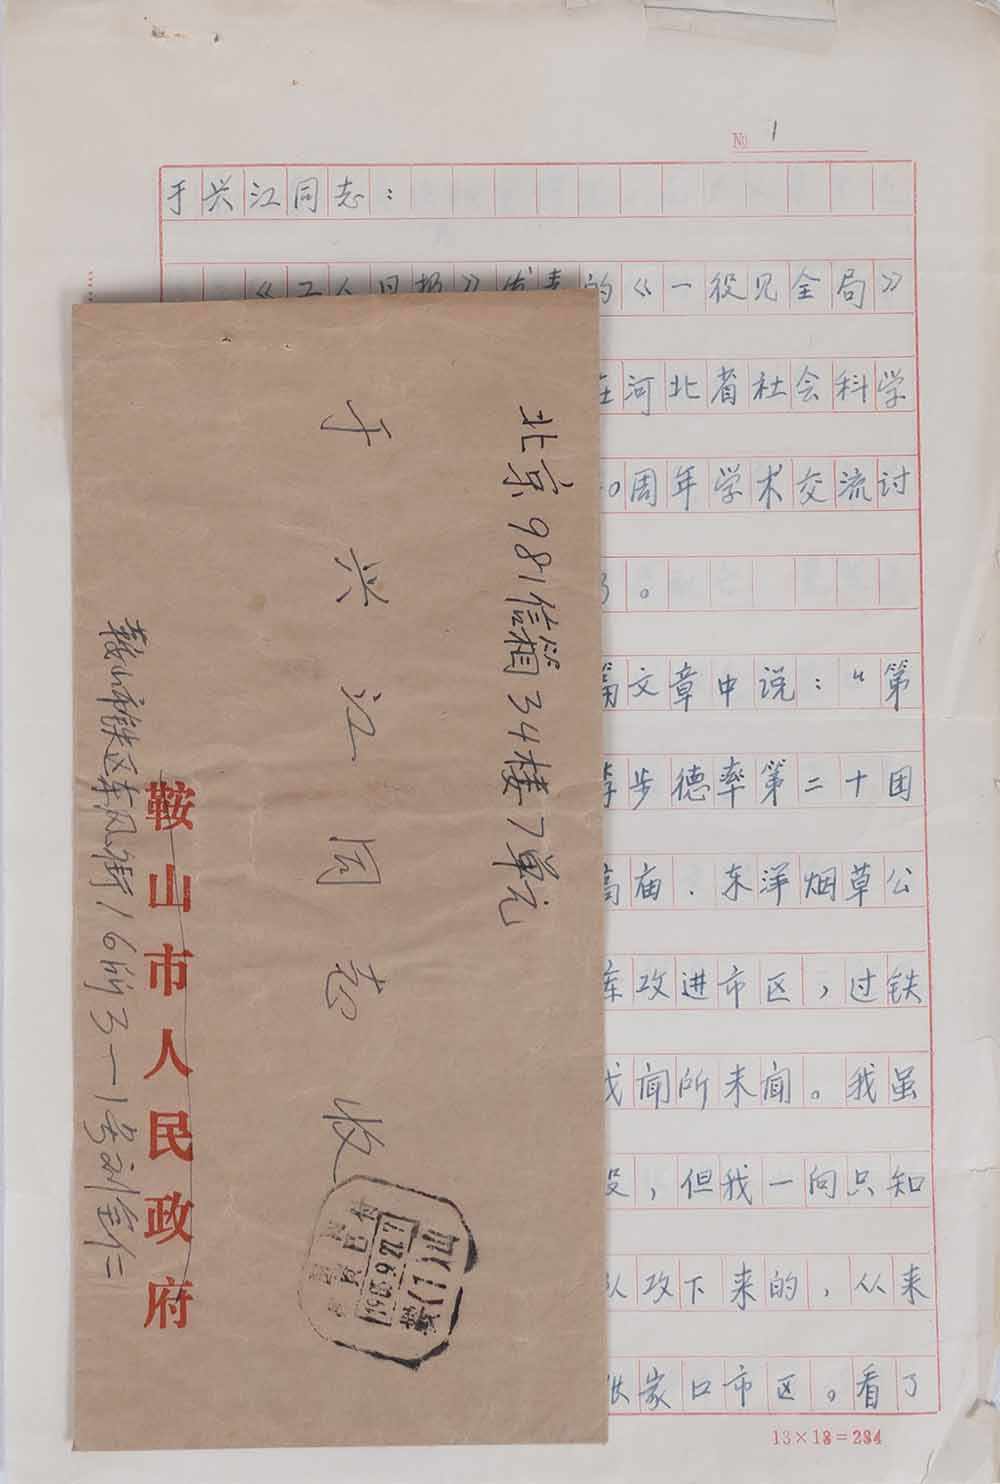 № 1
于兴江同志：
《工人日报》发表的《一役见全局》
在河北省社会科学
0周年学术交流讨
了。
篇文章中说：“第
李步德率第二十团
高庙．东洋烟草公
库攻进市区，过铁
我闻所未闻。我虽
役，但我一向只知
队攻下来的，从来
张家口市区。看了
13×18=234
北京981信箱34楼7单元
于兴江同志收
鞍山市人民政府
鞍山市铁区东风街16
3—1号刘金仁